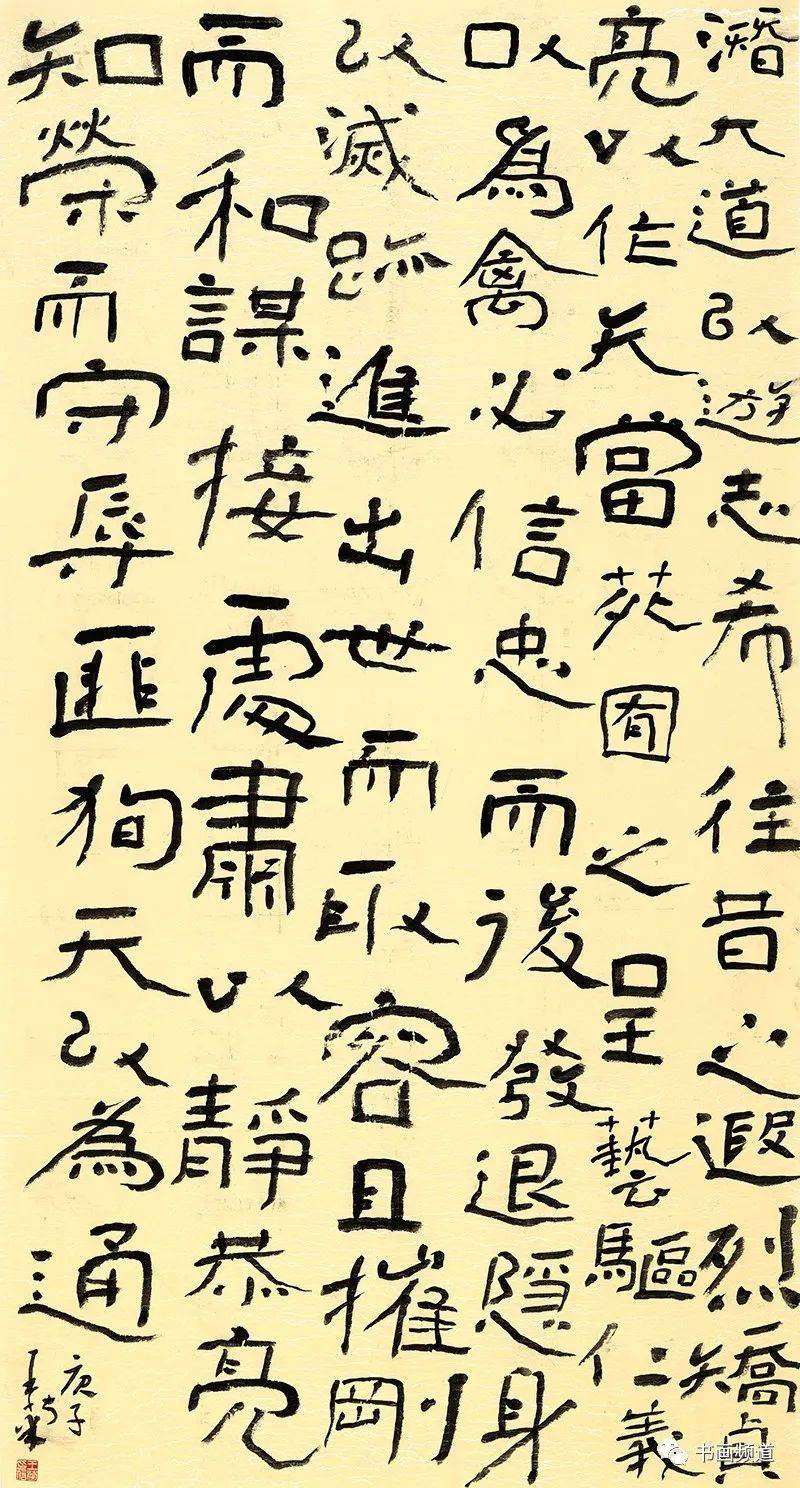 潛大道以遊志希往昔之遐烈矯貞
亮以作矢當苑囿之呈藝驅仁義
以為禽必信忠而後發退隱身
以滅跡進出世而取容且摧剛
而和謀接處肅以靜恭亮
知榮而守辱匪狥天以為通
庚子
书画频道